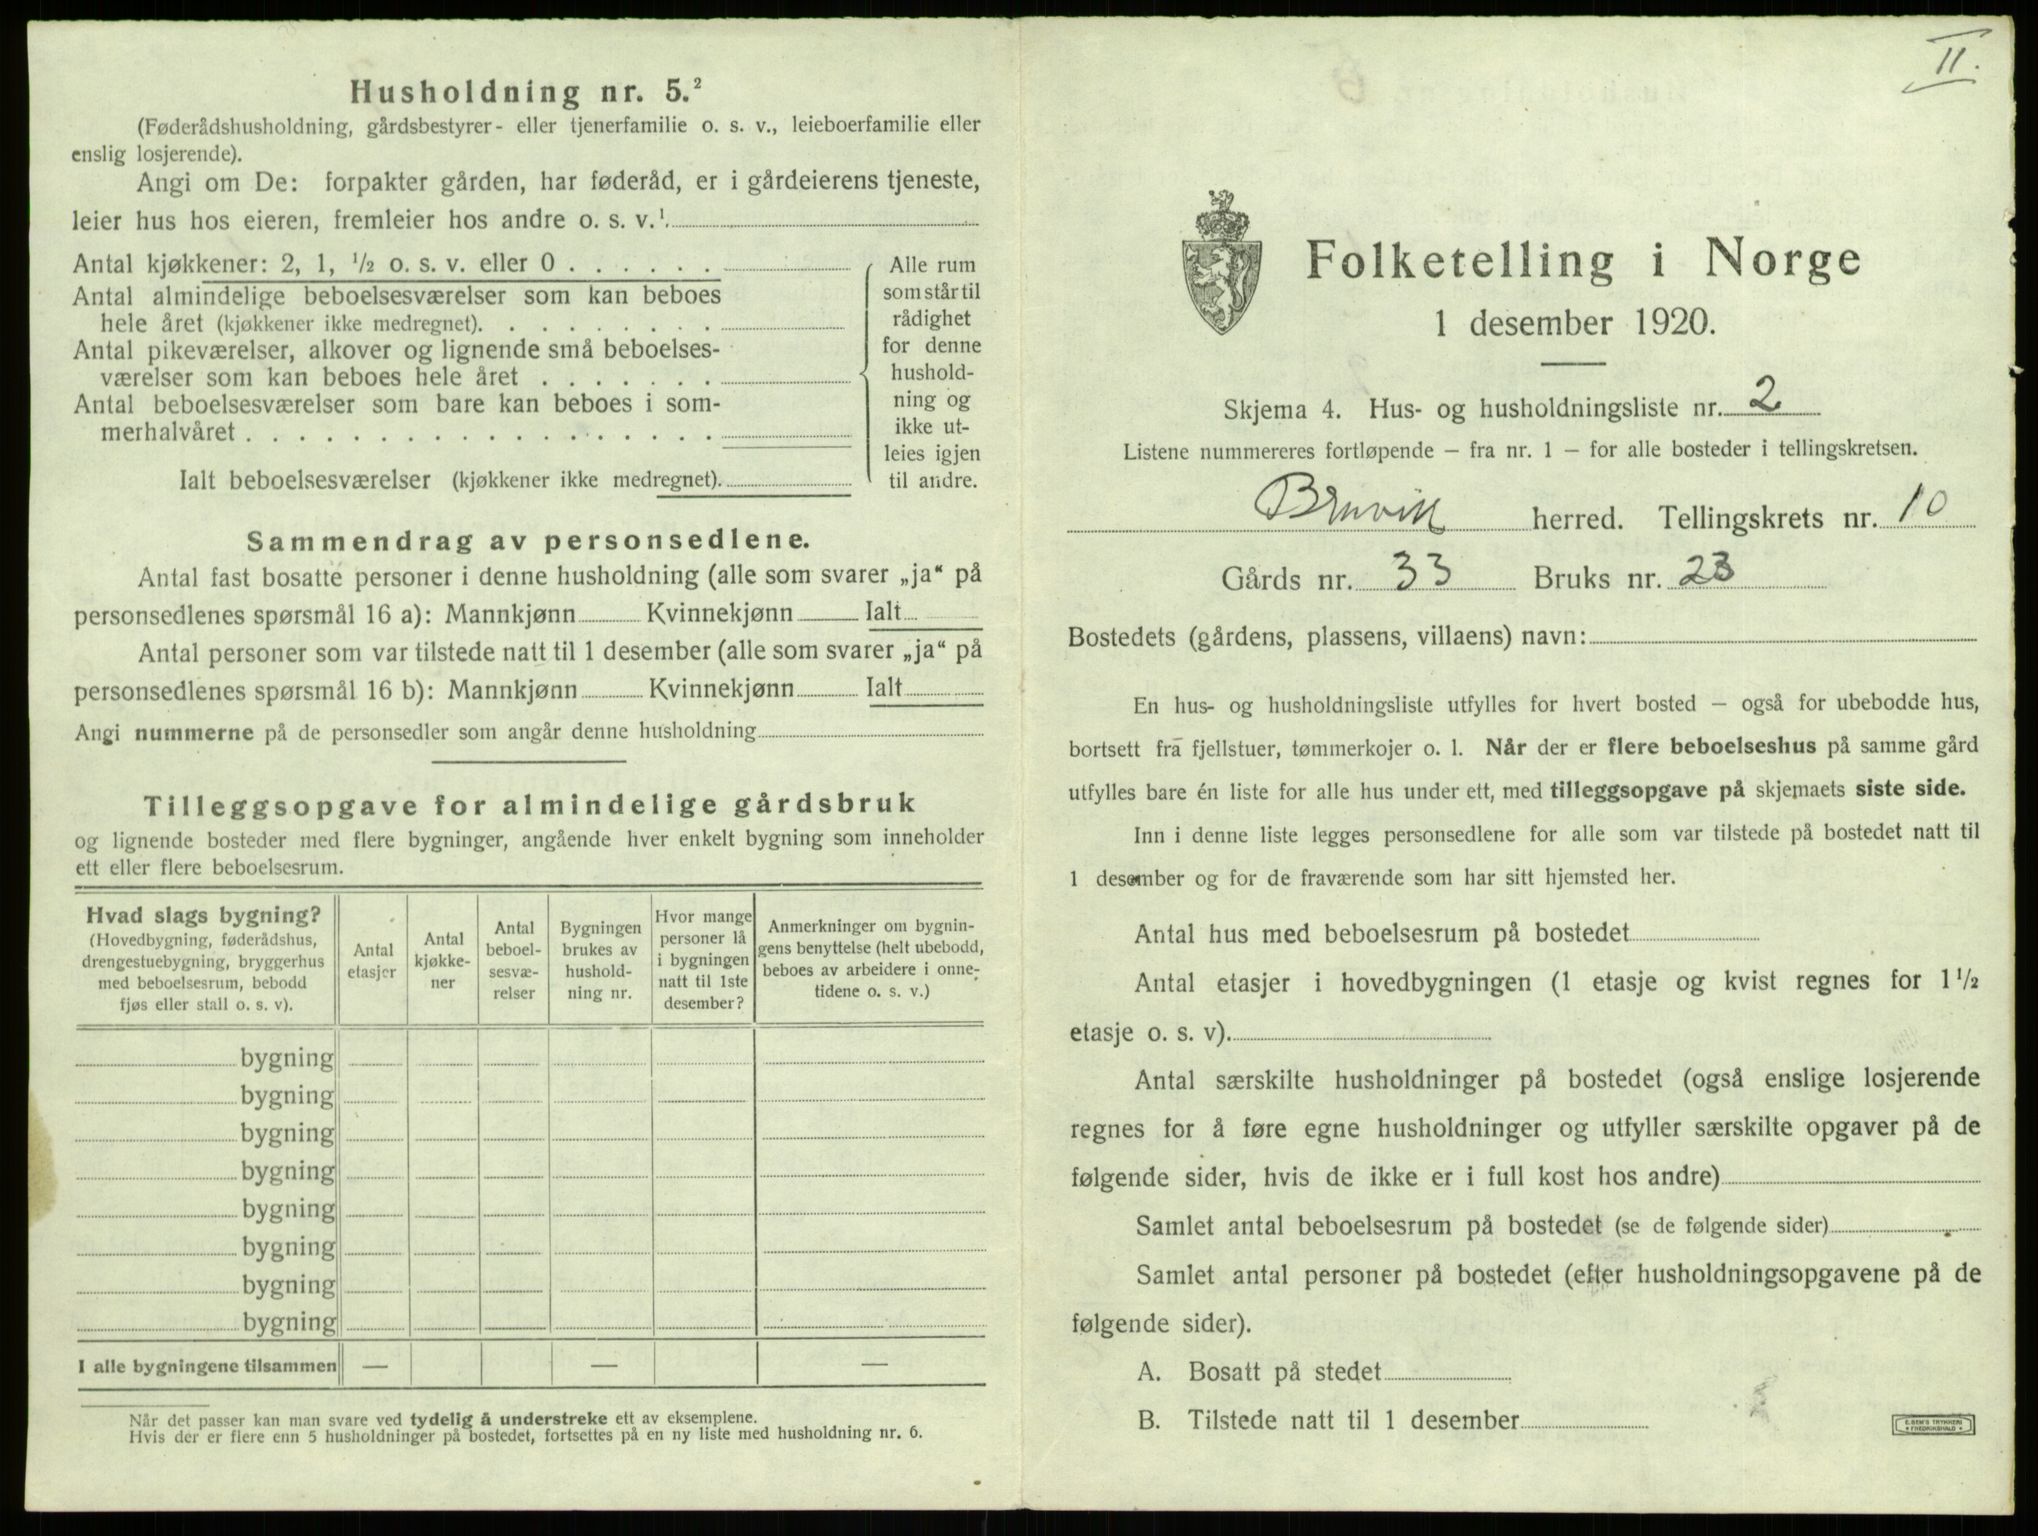 Husholdning nr. 5.²
(Føderådshusholdning, gårdsbestyrer- eller tjenerfamilie o. s. v., leieboerfamilie eller
enslig losjerende).
Angi om De: forpakter gården, har føderåd, er i gårdeierens tjeneste,
leier hus hos eieren, fremleier hos andre o. s. v.¹
Antal kjøkkener: 2, 1, ½ o. s. v. eller 0 . . . . . .
Antal almindelige beboelsesværelser som kan beboes
hele året (kjøkkener ikke medregnet). . . . . . . . .
Antal pikeværelser, alkover og lignende små beboelses-
værelser som kan beboes hele året . . . . . . .
Antal beboelsesværelser som bare kan beboes i som-
merhalvåret . . . . . . . . . . . . . . . . . .
Ialt beboelsesværelser (kjøkkener ikke medregnet).
Alle rum
som står til
rådighet
for denne
hushold-
ning og
ikke ut-
leies igjen
til andre.
Sammendrag av personsedlene.
Antal fast bosatte personer i denne husholdning (alle som svarer „ja“ på
personsedlenes spørsmål 16 a): Mannkjønn Kvinnekjønn Ialt
Antal personer som var tilstede natt til 1 desember (alle som svarer „ja“ på
personsedlenes spørsmål 16 b): Mannkjønn Kvinnekjønn Ialt
Angi nummerne på de personsedler som angår denne husholdning
Tilleggsopgave for almindelige gårdsbruk
og lignende bosteder med flere bygninger, angående hver enkelt bygning som inneholder
ett eller flere beboelsesrum.
Hvad slags bygning?
(Hovedbygning, føderådshus,
drengestuebygning, bryggerhus
med beboelsesrum, bebodd
fjøs eller stall o. s. v).
Antal
etasjer
Antal
kjøkke-
ner
Antal
beboel-
sesvæ-
relser
Bygningen
brukes av
hushold-
ning nr.
Hvor mange
personer lå
i bygningen
natt til 1ste
desember?
Anmerkninger om bygnin-
gens benyttelse (helt ubebodd,
beboes av arbeidere i onne-
tidene o. s. v.)
bygning
bygning
bygning
bygning
bygning
bygning
bygning
bygning
I alle bygningene tilsammen — — —
Når det passer kan man svare ved tydelig å understreke ett av eksemplene.
Hvis der er flere enn 5 husholdninger på bostedet, fortsettes på en ny liste med husholdning nr. 6.
II.
Folketelling i Norge
1 desember 1920.
Skjema 4. Hus- og husholdningsliste nr. 2
Listene nummereres fortløpende — fra nr. 1 — for alle bosteder i tellingskretsen.
Bruvik herred. Tellingskrets nr. 10
Gårds nr. 33 Bruks nr. 23
Bostedets (gårdens, plassens, villaens) navn:
En hus- og husholdningsliste utfylles for hvert bosted — også for ubebodde hus,
bortsett fra fjellstuer, tømmerkojer o. l. Når der er flere beboelseshus på samme gård
utfylles bare én liste for alle hus under ett, med tilleggsopgave på skjemaets siste side.
Inn i denne liste legges personsedlene for alle som var tilstede på bostedet natt til
1 desember og for de fraværende som har sitt hjemsted her.
Antal hus med beboelsesrum på bostedet
Antal etasjer i hovedbygningen (1 etasje og kvist regnes for 1½
etasje o. s. v).
Antal særskilte husholdninger på bostedet (også enslige losjerende
regnes for å føre egne husholdninger og utfyller særskilte opgaver på de
følgende sider, hvis de ikke er i full kost hos andre)
Samlet antal beboelsesrum på bostedet (se de følgende sider)
Samlet antal personer på bostedet (efter husholdningsopgavene på de
følgende sider).
A. Bosatt på stedet
B. Tilstede natt til 1 desember
E. SEM'S TRYKKERI
FREDRIKSHALD